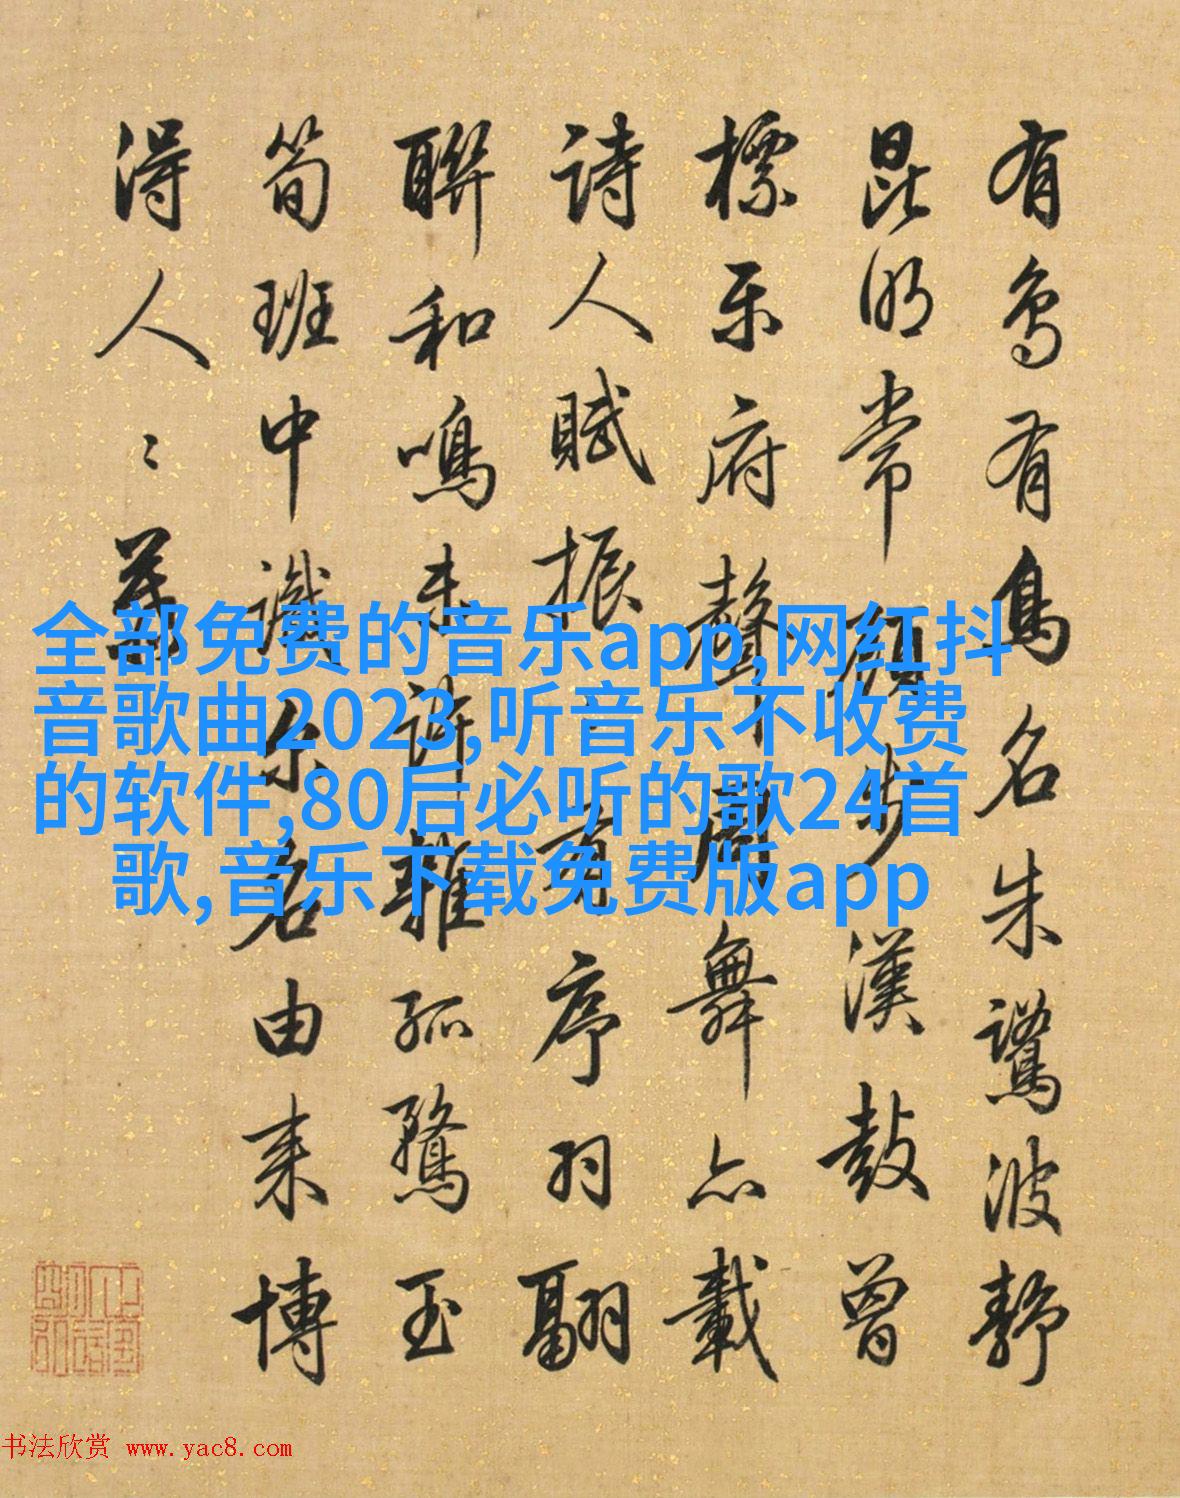 有鳥有鳥名朱鷺波靜
昆明常顧步漢鼓曾
標樂府聲周舞亦載
詩人賦振振有序羽翩
聯和鳴未許雜孤鶩玉
筍班中識尔名由来博
得人〻
全部免费的音乐app,网红抖
音歌曲2023,听音乐不收费
的软件,80后必听的歌24首
歌,音乐下载免费版app
书法欣赏 www.yac8.com